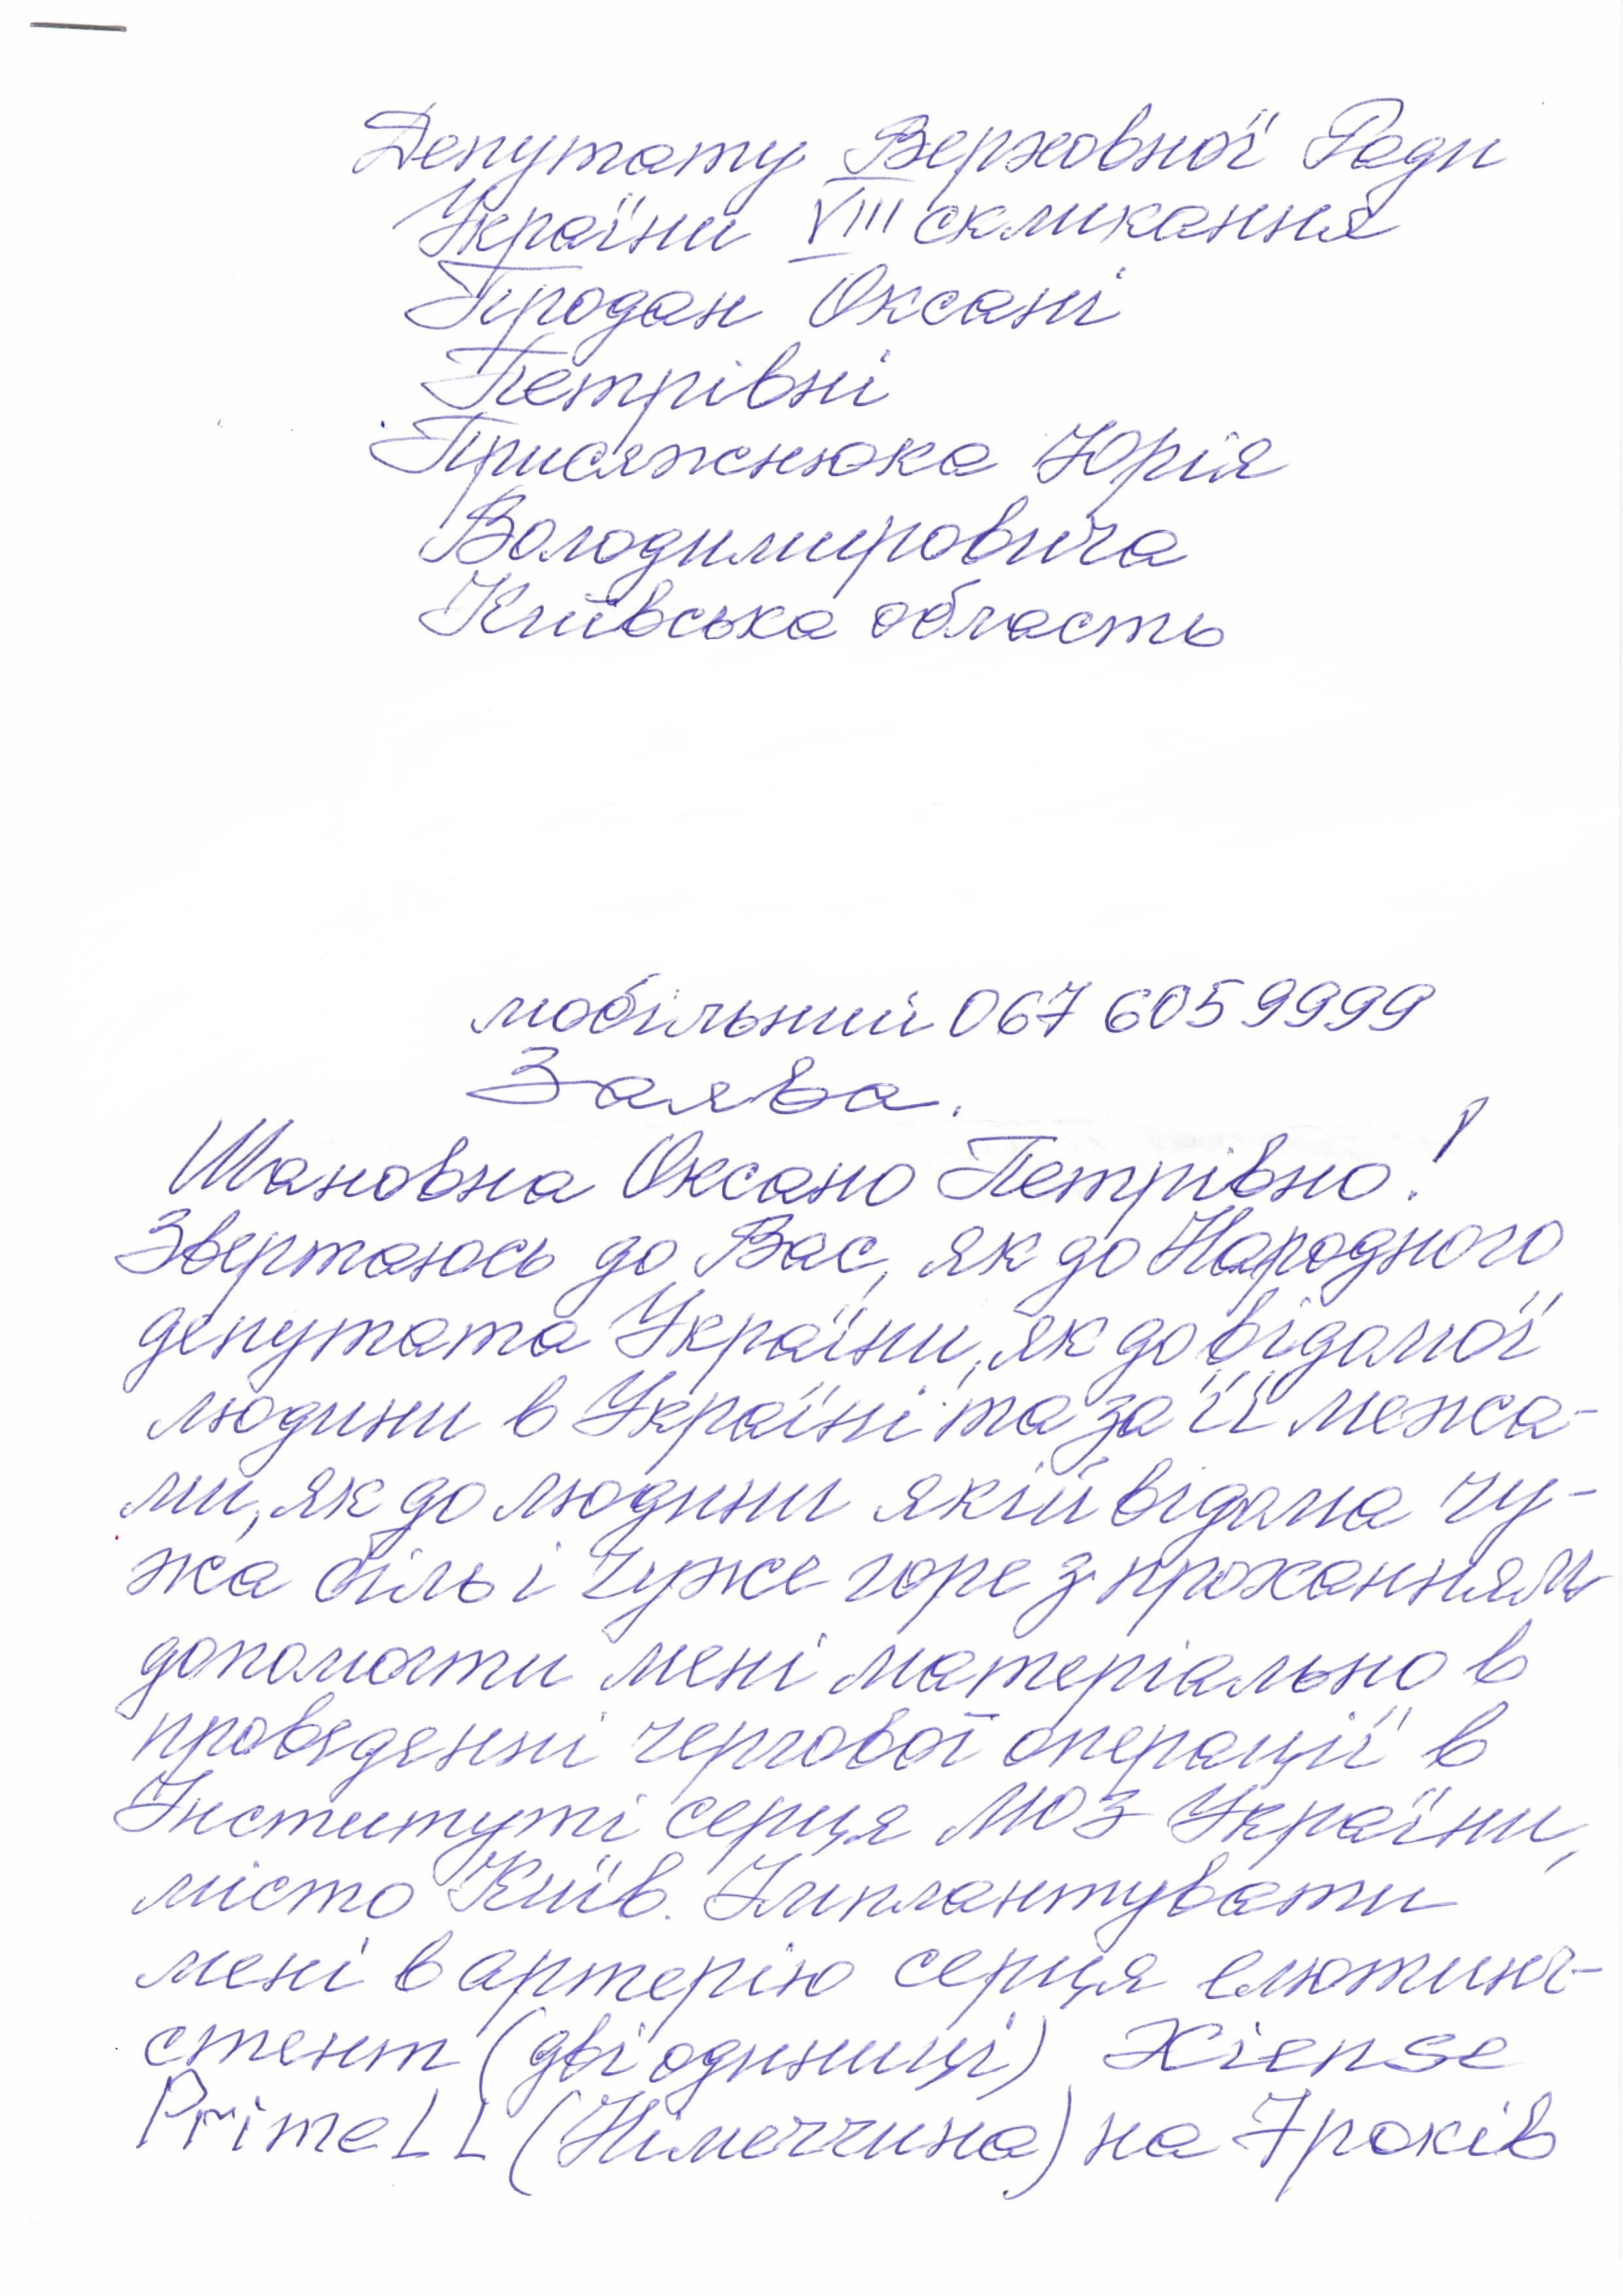 Депутату Верховної Ради
України VIII скликання
Продан Оксані
Петрівні
Присяжнюка Юрія
Володимировича
Київська область
мобільний 067 605 9999
Заява.
Шановна Оксано Петрівно!
Звертаюсь до Вас, як до Народного
депутата України, як до відомої
людини в Україні та за її межа-
ми, як до людини якій відома чу-
жа біль і чуже горе з проханням
допомогти мені матеріально в
проведенні чергової операції в
Інституті серця МОЗ України,
місто Київ. Імплантувати
мені в артерію серця елютинг-
стент (дві одиниці) Xiense
Prime LL (Німеччина) на 7 років